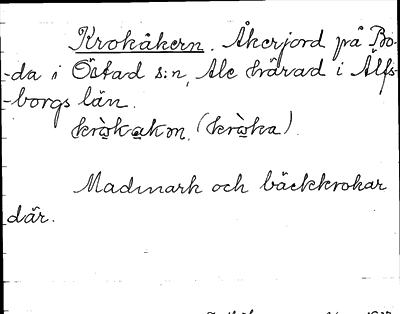 Krokåkern. Åkerjord på Bo-
-da i Östad s:n, Ale härad i Älfs-
-borgs län.
kròkakɷn. (kròka).
Madmark och bäckkrokar
där.